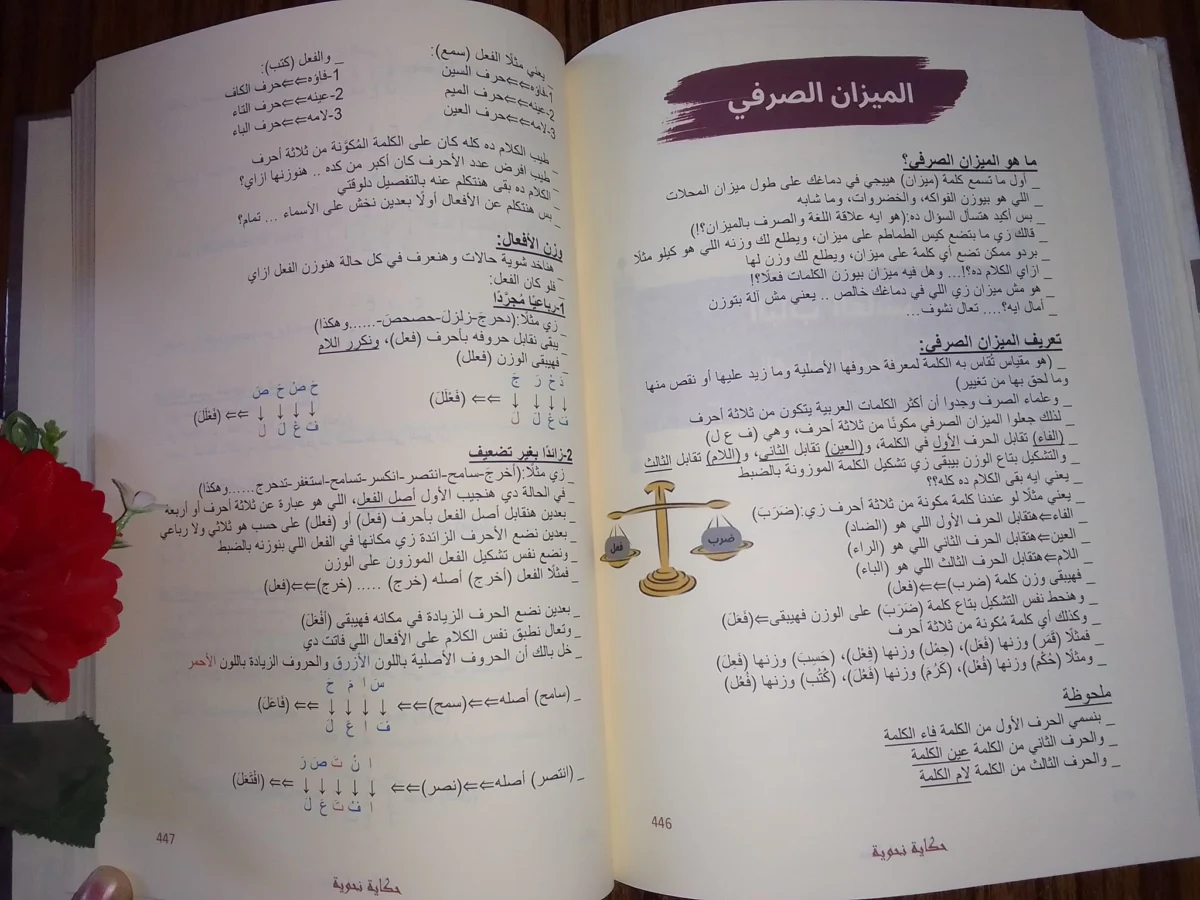 الميزان الصرفي
ما هو الميزان الصرفي؟
_ أول ما تسمع كلمة (ميزان) هييجي في دماغك على طول ميزان المحلات
اللي هو بيوزن الفواكه، والخضروات، وما شابه
_ بس أكيد هتسأل السؤال ده:(هو ايه علاقة اللغة والصرف بالميزان؟!)
_ قالك زي ما بتضع كيس الطماطم على ميزان، ويطلع لك وزنه اللي هو كيلو مثلًا
_ بردو ممكن تضع أي كلمة على ميزان، ويطلع لك وزن لها
_ ازاي الكلام ده؟!... وهل فيه ميزان بيوزن الكلمات فعلًا؟!
_ هو مش ميزان زي اللي في دماغك خالص .. يعني مش آلة بتوزن
_ أمال ايه؟.... تعال نشوف...
تعريف الميزان الصرفي:
_ (هو مقياس تُقاس به الكلمة لمعرفة حروفها الأصلية وما زيد عليها أو نقص منها
وما لحق بها من تغيير)
_ وعلماء الصرف وجدوا أن أكثر الكلمات العربية يتكون من ثلاثة أحرف
_ لذلك جعلوا الميزان الصرفي مكونًا من ثلاثة أحرف، وهي (ف ع ل)
_ (الفاء) تقابل الحرف الأول في الكلمة، و(العين) تقابل الثاني، و(اللام) تقابل الثالث
_ والتشكيل بتاع الوزن بيبقى زي تشكيل الكلمة الموزونة بالضبط
_ يعني ايه بقى الكلام ده كله؟؟
_ يعني مثلًا لو عندنا كلمة مكونة من ثلاثة أحرف زي:(ضَرَبَ)
_ الفاء⇐هتقابل الحرف الأول اللي هو (الضاد)
_ العين⇐هتقابل الحرف الثاني اللي هو (الراء)
_ اللام⇐هتقابل الحرف الثالث اللي هو (الباء)
_ فهيبقى وزن كلمة (ضرب)⇐⇐(فعل)
_ وهنحط نفس التشكيل بتاع كلمة (ضَرَبَ) على الوزن فهيبقى⇐(فَعَلَ)
_ وكذلك أي كلمة مُكونة من ثلاثة أحرف
_ فمثلًا (قَمَر) وزنها (فَعَل)، (حِمْل) وزنها (فِعْل)، (حَسِبَ) وزنها (فَعِلَ)
_ ومثلًا (حُكْم) وزنها (فُعْل)، (كَرُمَ) وزنها (فَعُلَ)، (كُتُب) وزنها (فُعُل)
ضرب
فعل
ملحوظة
_ بنسمي الحرف الأول من الكلمة فاء الكلمة
_ والحرف الثاني من الكلمة عين الكلمة
_ والحرف الثالث من الكلمة لام الكلمة
446
حكاية نحوية
_ يعني مثلًا الفعل (سمع):
1-فاؤه⇐⇐حرف السين
2-عينه⇐⇐حرف الميم
3-لامه⇐⇐حرف العين
_ والفعل (كتب):
1-فاؤه⇐⇐حرف الكاف
2-عينه⇐⇐حرف التاء
3-لامه⇐⇐حرف الباء
_ طيب الكلام ده كله كان على الكلمة المُكوَّنة من ثلاثة أحرف
_ طيب افرض عدد الأحرف كان أكبر من كده .. هنوزنها ازاي؟
_ الكلام ده بقى هنتكلم عنه بالتفصيل دلوقتي
_ بس هنتكلم عن الأفعال أولًا بعدين نخش على الأسماء ... تمام؟
وزن الأفعال:
_ هناخد شوية حالات وهنعرف في كل حالة هنوزن الفعل ازاي
_ فلو كان الفعل:
1-رباعيًا مُجرَّدًا
_ زي مثلًا:(دحرجَ-زلزلَ-حصحصَ-......وهكذا)
_ يبقى نقابل حروفه بأحرف (فعل)، ونكرر اللام
_ فهيبقى الوزن (فعلل)
دَ حْ رَ جَ
↓ ↓ ↓ ↓ ⇐⇐ (فَعْلَلَ)
فَ عْ لَ لَ
حَ صْ حَ صَ
↓ ↓ ↓ ↓ ⇐⇐ (فَعْلَلَ)
فَ عْ لَ لَ
2-زائدًا بغير تضعيف
_ زي مثلًا:(أخرجَ-سامح-انتصر-انكسر-تسامح-استغفر-تدحرج......وهكذا)
_ في الحالة دي هنجيب الأول أصل الفعل، اللي هو عبارة عن ثلاثة أحرف أو أربعة
_ بعدين هنقابل أصل الفعل بأحرف (فعل) أو (فعلل) على حسب هو ثلاثي ولا رباعي
_ بعدين نضع الأحرف الزائدة زي مكانها في الفعل اللي بنوزنه بالضبط
_ ونضع نفس تشكيل الفعل الموزون على الوزن
_ فمثلًا الفعل (أخرج) أصله (خرج) ..... (خرج)⇐⇐(فعل)
_ بعدين نضع الحرف الزيادة في مكانه فهيبقى (أفْعَلَ)
_ وتعال نطبق نفس الكلام على الأفعال اللي فاتت دي
_ خل بالك أن الحروف الأصلية باللون الأزرق والحروف الزيادة باللون الأحمر
سَ ا مَ حَ
_ (سامح) أصله⇐⇐(سمح)⇐⇐ ↓ ↓ ↓ ↓ ⇐⇐ (فَاعَلَ)
فَ ا عَ لَ
ا نْ تَ صَ رَ
_ (انتصر) أصله⇐⇐(نصر)⇐⇐ ↓ ↓ ↓ ↓ ↓ ⇐⇐ (افْتَعَلَ)
ا فْ تَ عَ لَ
447
حكاية نحوية